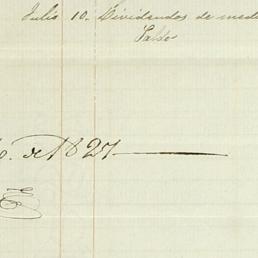 Julio 10. Dividendos de
Saldo
de 1827